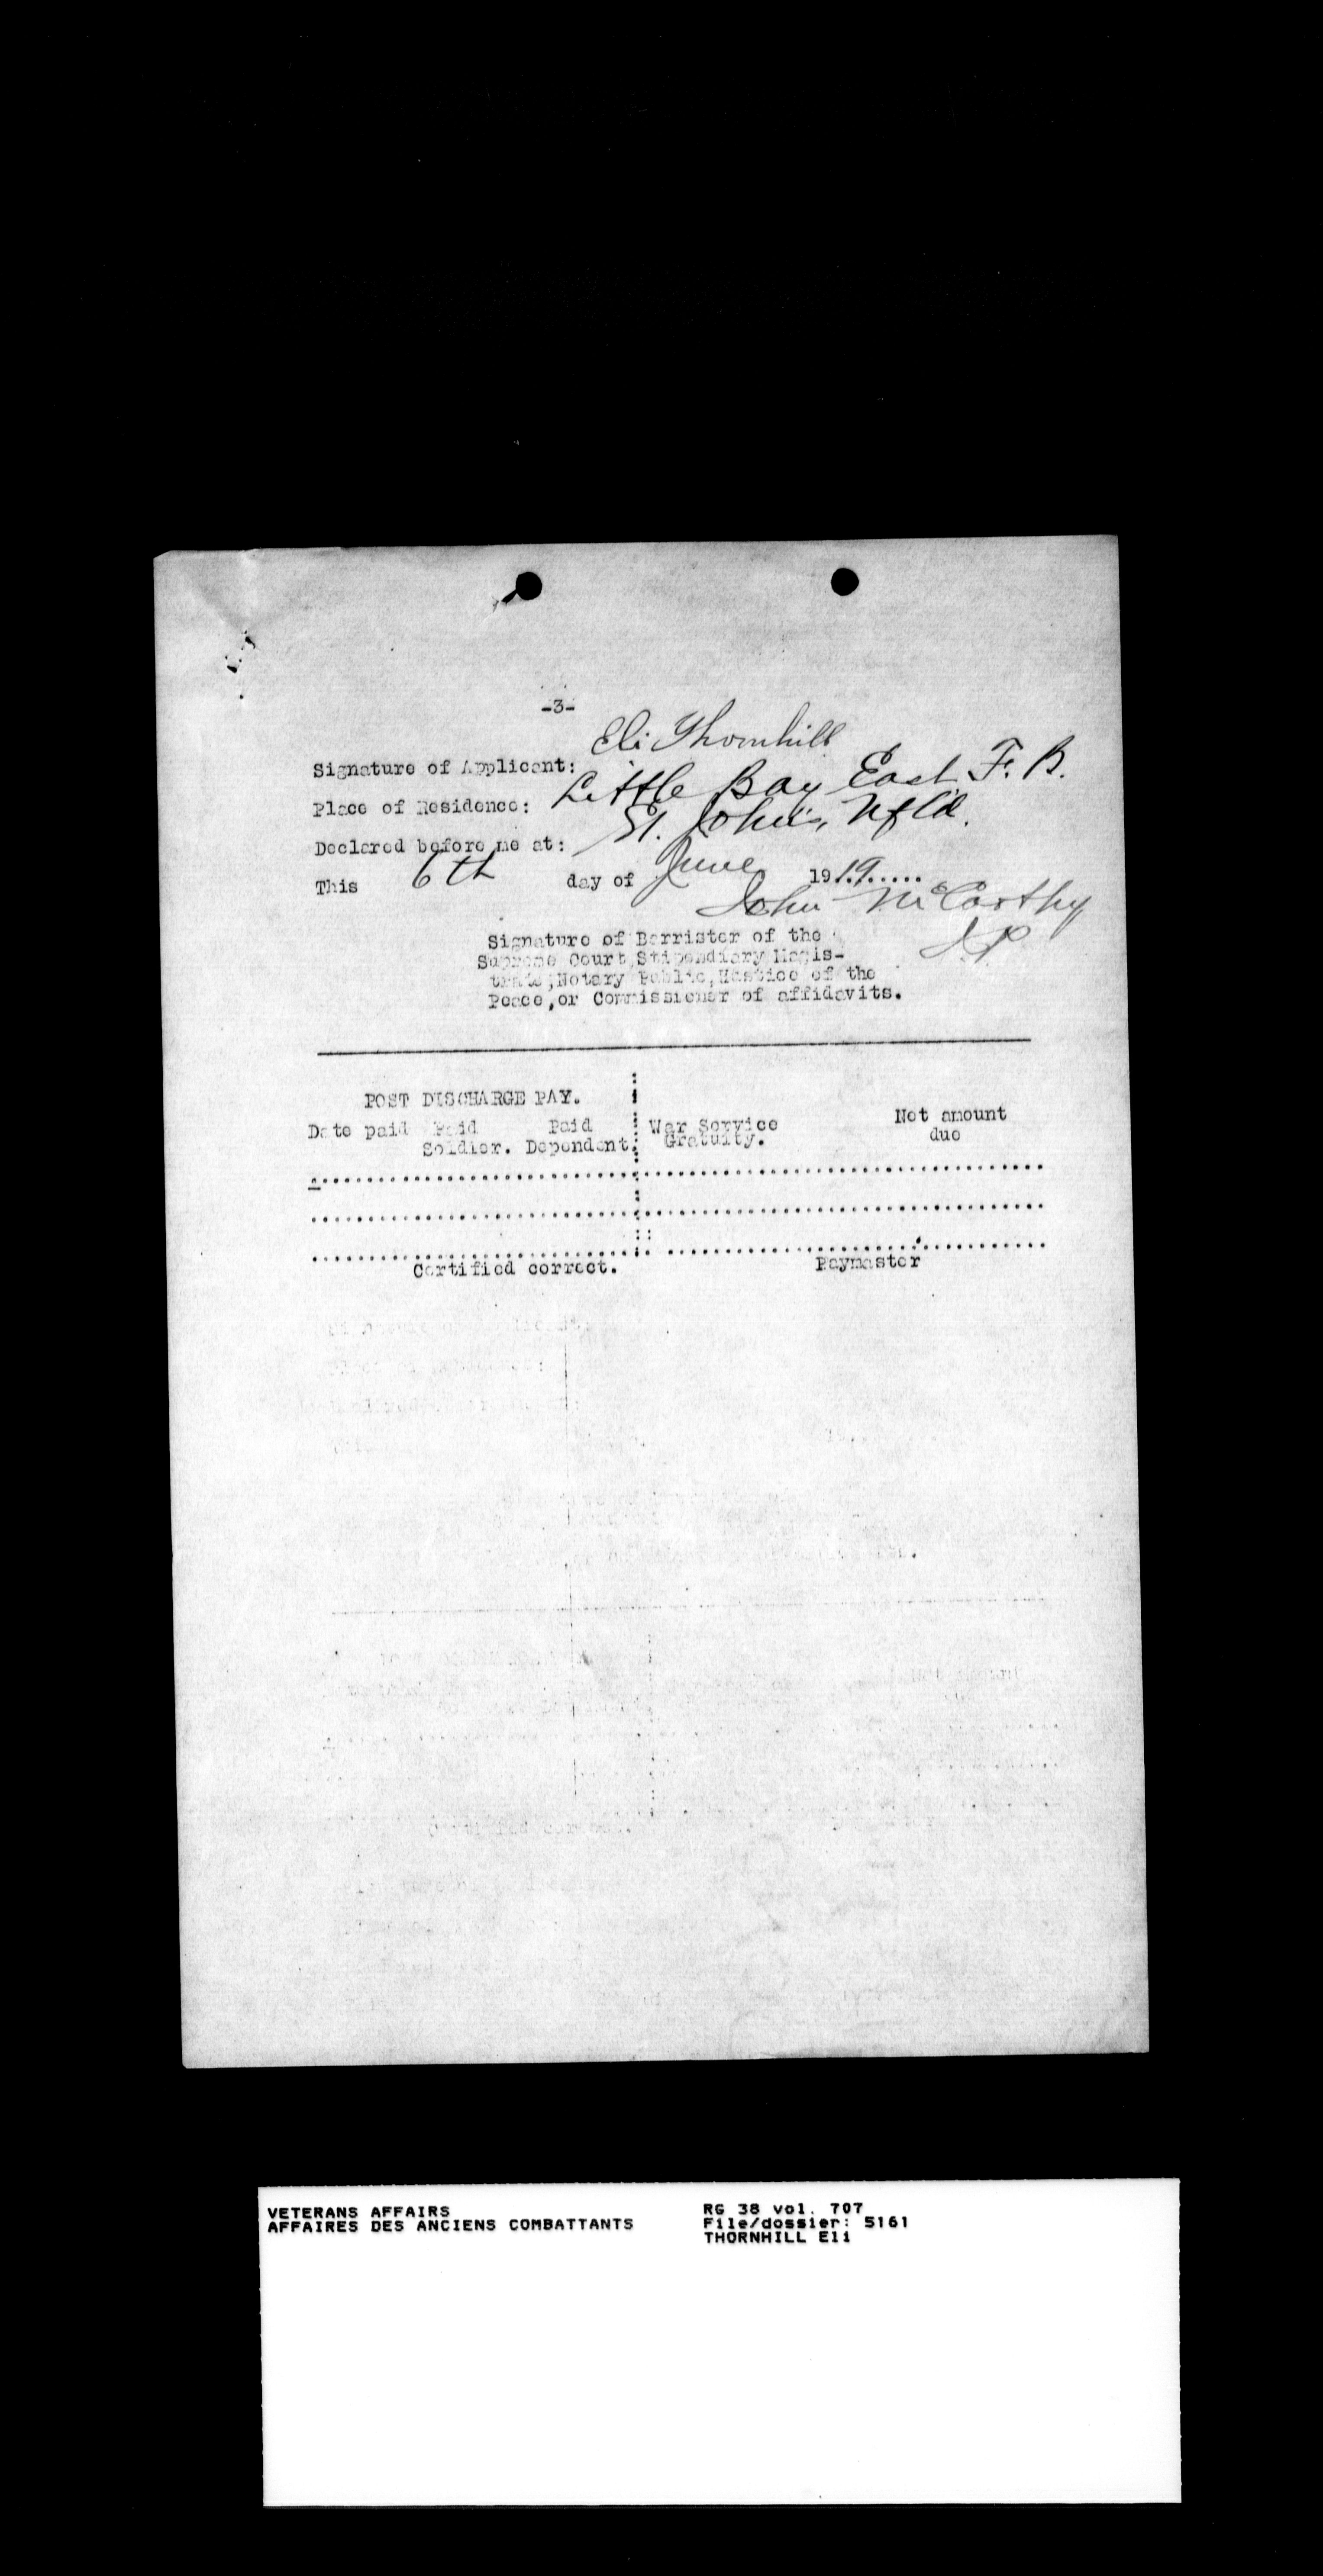 -3-
Signature of Applicant: Eli Thornhill
Place of Residence: Little Bay East F. B.
Declared before me at: St. John's, Nfld.
This 6th day of June 1919......
John McCarthy
J.P.
Signature of Barrister of the
Supreme Court, Stipendiary Magis-
trate, Notary Public, Hustice of the
Peace, or Commissioner of affidavits.
POST DISCHARGE PAY.
Date paid Paid Paid War Service Net amount
Soldier. Dependent. Gratuity. due
Certified correct. Paymaster
VETERANS AFFAIRS RG 38 vol. 707
AFFAIRES DES ANCIENS COMBATTANTS File/dossier: 5161
THORNHILL Eli